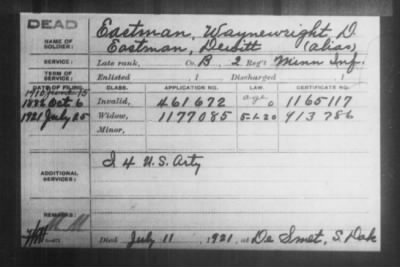 DEAD
NAME OF SOLDIER:
Eastman, Waynewright, D.
Eastman, Dewitt (alias)
SERVICE: Late rank, Co. B, 2 Reg't Minn Inf.
TERM OF SERVICE: Enlisted , 1 Discharged , 1
DATE OF FILING. CLASS. APPLICATION NO. LAW. CERTIFICATE NO.
1910 15 age
1882 Oct 6 Invalid, 461672 0 1165117
1921 July 25 Widow, 1177085 5-1-20 913786
Minor,
ADDITIONAL SERVICES:
I 4 U.S. Arty
REMARKS:
Died July 11, 1921, at De Smet, S. Dak